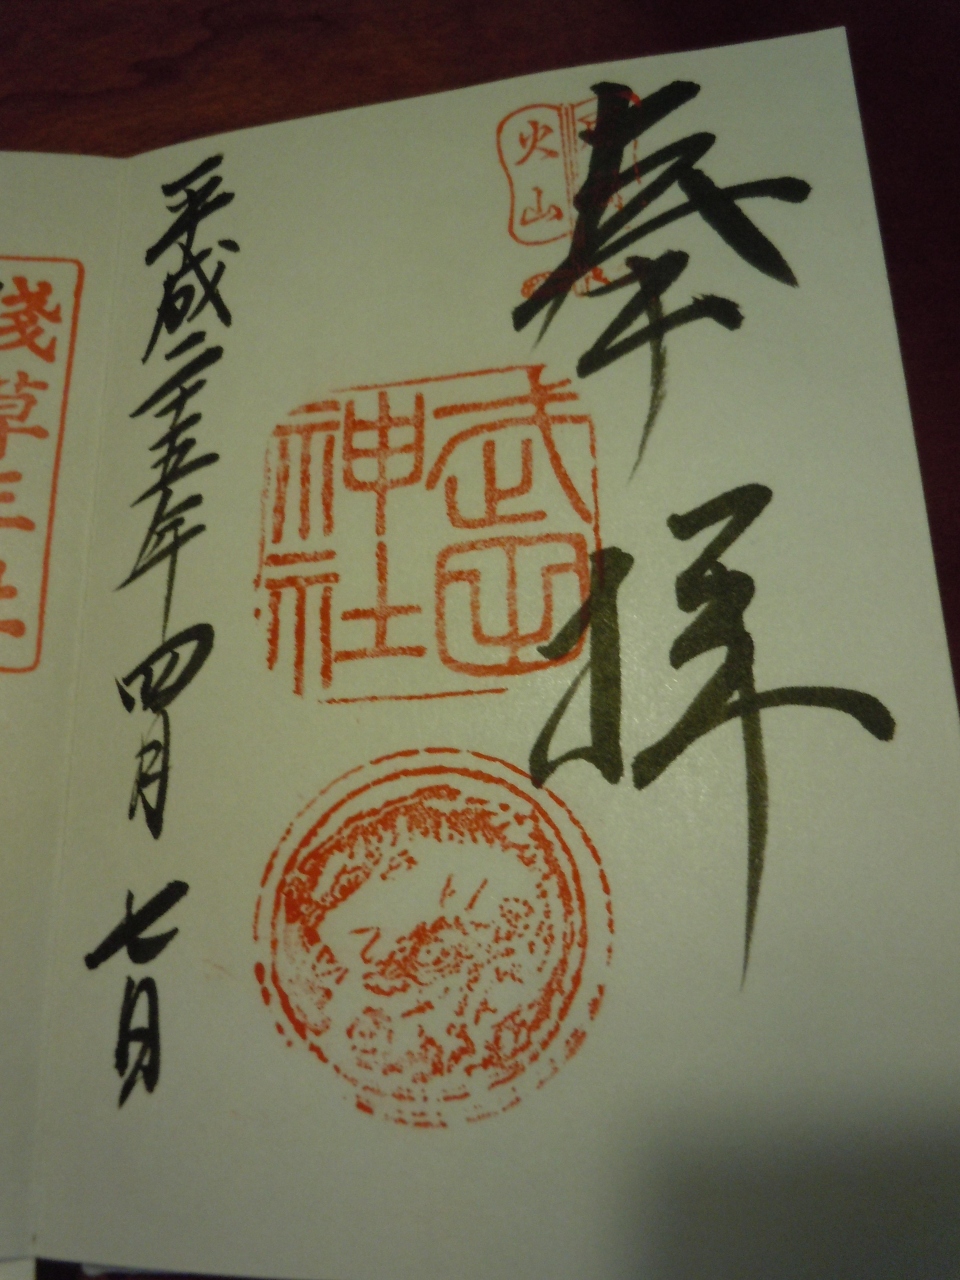 奉拝
火山
武田
神社
平成二十五年四月七日
淺草三社